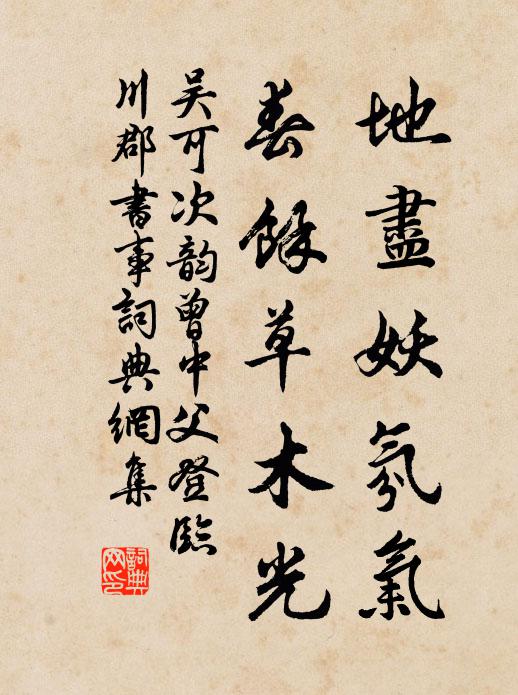 地盡妖氛氣
春餘草木光
吳可次韵曾中父登臨
川郡書事詞典網集
詞典网印